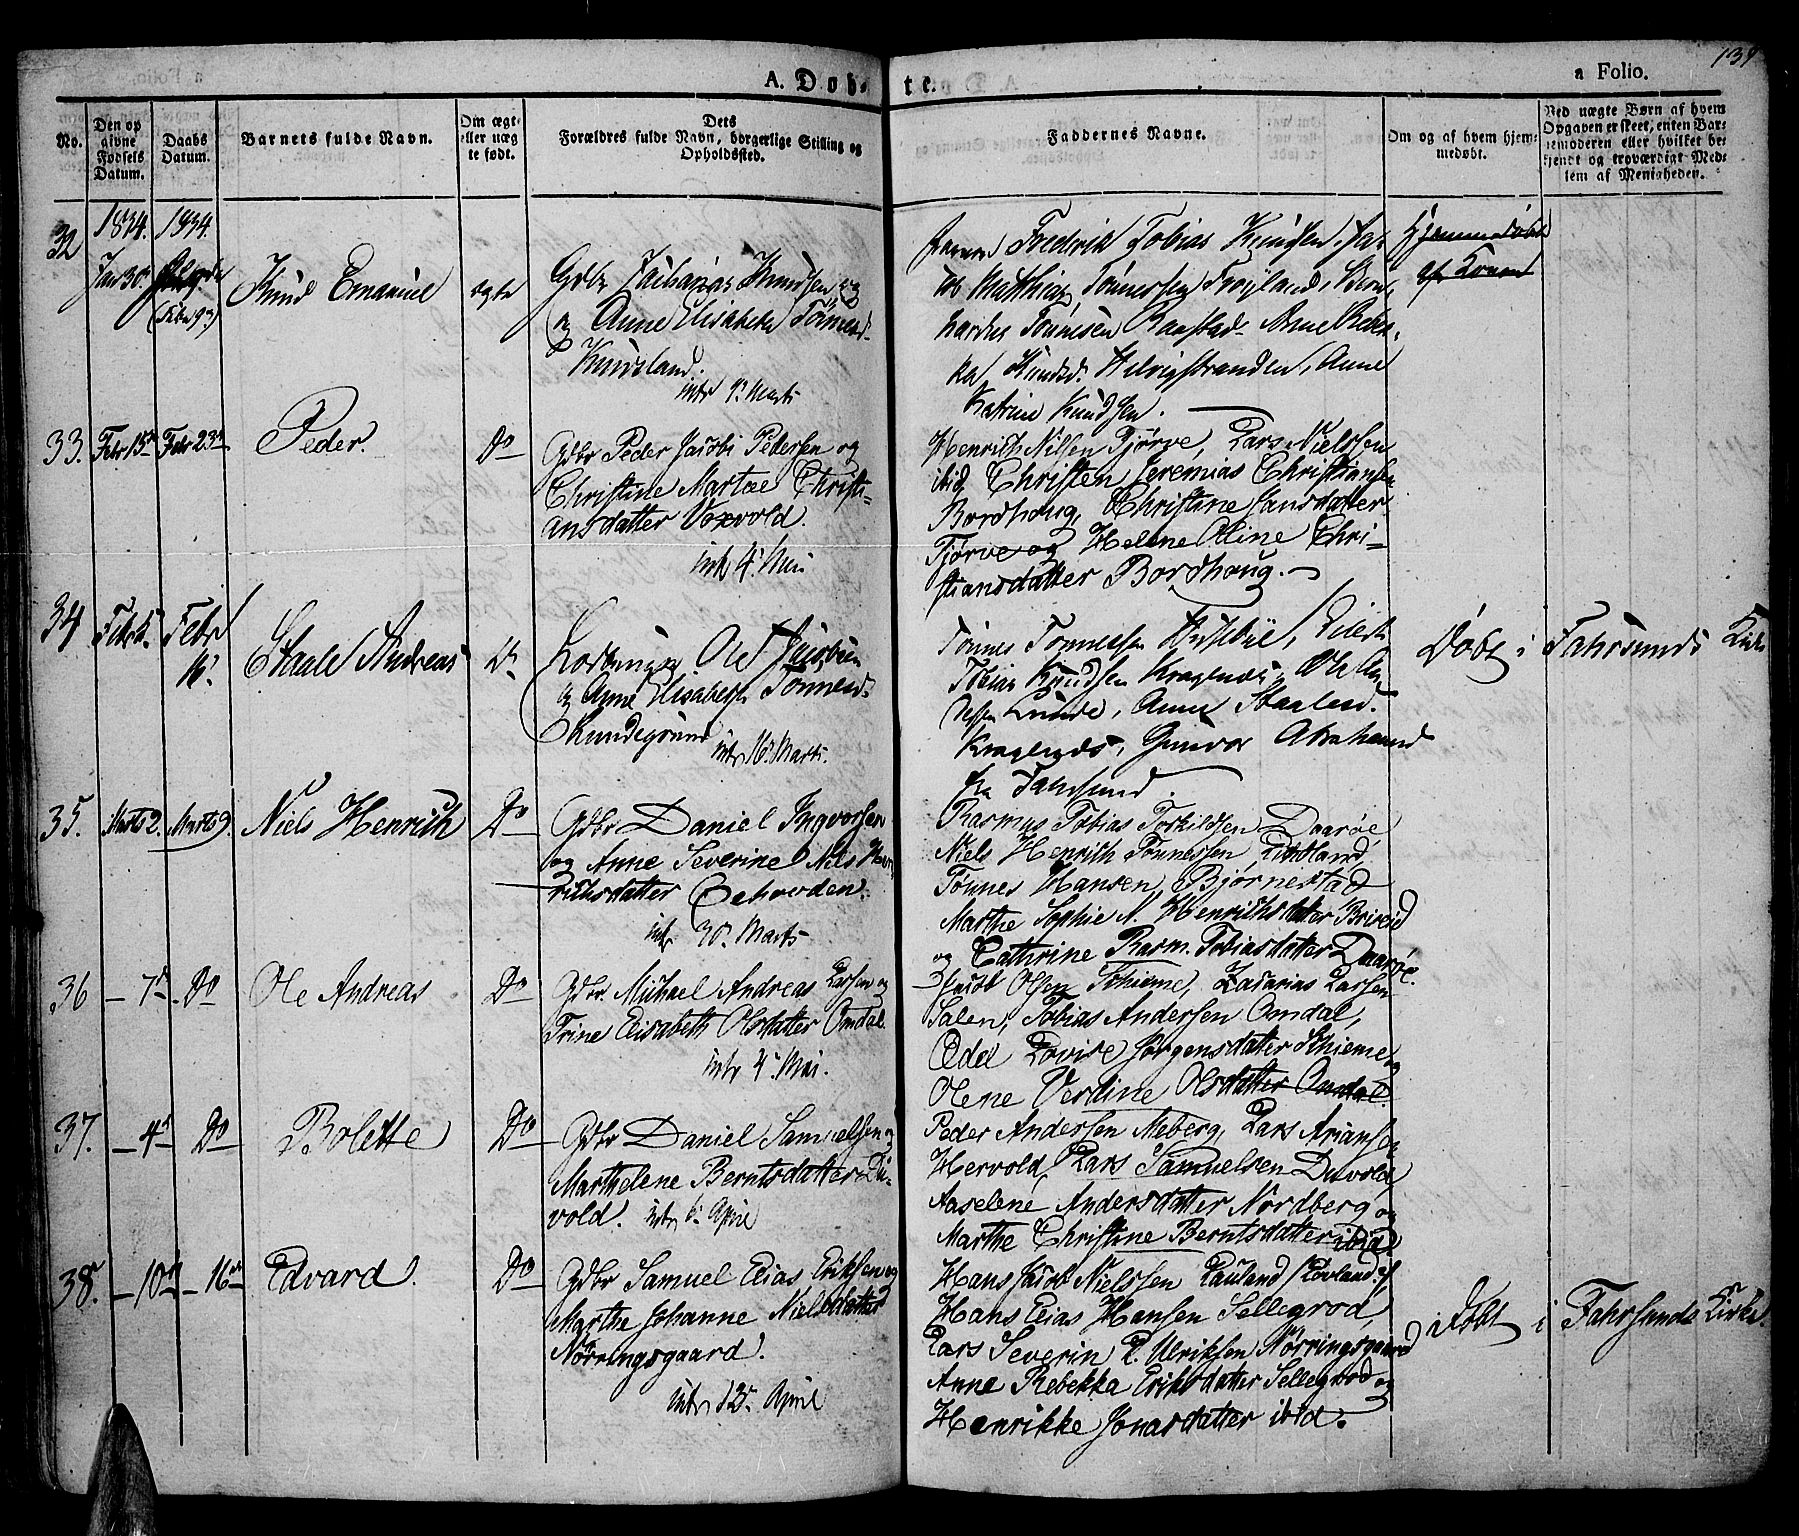 139
A. Døbte.
a Folio.
No.
Den op
givne
Fødsels
Datum.
Daabs
Datum.
Barnets fulde Navn.
Om ægt-
eller uæg
te født.
Dets
Forældres fulde Navn, borgerlige Stilling og
Opholdssted.
Faddernes Navne.
Om og af hvem hjem-
medøbt.
Ved uægte Børn af hvem
Opgaven er skeet, enten Bar-
nemoderen eller hvilket be-
kjendt og troværdigt Med-
lem af Menigheden.
1834. 1834.
32
Jan 30.
(Febr 9de)
Knud Emanuel
ægte
Gdbr Zacharias Knudsen og
og Anne Elisabeth Tønnesd.
Knudsland.
intr 9. Marts
Frederik Tobias Knudsen, Ja-
cob Matthias Tønnessen Frøyland, Bern-
hardus Tønnesen Raastad Anne Rebek-
ka Knudsd. Helvigstranden, Anne
Katrine Knudsen.
Hjemmedøbt
af Konen
33. Febr 15de Febr 23de
Peder.
Do
Gdbr Peder Jacobi Pedersen og
Christine Martæ Christi-
ansdatter Voxvold.
intr 4. Mai
Henrich Nilsen Tjørve, Lars Nielssen
ibid Christen Jeremias Christiansen
Bordhoug, Christiane Jansdatter
Tjørve og Helene Oline Chri-
stiansdatter Bordhoug.
34
Febr
Febr
16.
Staale Andreas
Do
Ole Jacobsen
og Anne Elisabeth Tønnesd.
Rundegrund
intr 16. Marts.
Tønnes Tønnessen Huseby, Eilert
Tobias Knudsen Kragenæs, Ole An-
Lunde, Anne Staalesd.
Kragenæs, Gunvor Abrahamsd
fra Farsund.
Døbt i Fahrsunds Kirke
35. Marts 2. Marts 9.
Niels Henrich
Do
Gdbr Daniel Ingvorsen
og Anne Severine Niels Hen-
richsdatter Østhaaden.
intr 30. Marts
Rasmus Tobias Torkildsen Daarøe
Niels Henrich Tønnessen Birkeland,
Tønnes Hansen Bjørnestad
Marthe Sophie N. Henrichsdatter Briseid
og Cathrine Rasm. Tobiasdatter Daarøe.
36 — 7de Do
Ole Andreas
Do
Gdbr Michael Andreas Larsen og
Trine Elisabeth Olsdatter Omdal
intr 4. Mai.
Jacob Olsen Schieme, Zacarias Larsen
Salen, Tobias Andersen Omdal,
Ædel Lovise Jørgensdatter Schieme og
Olene Verdine Olsdatter Omdal.
37. — 4de Do
Bolette
Do
Gdbr Daniel Samuelsen og
Marthelene Berntsdatter Du-
vold. intr 6. April
Peder Andersen Meberg, Lars Ariansen
Hervold, Lars Samuelsen Duvold,
Aaselene Andersdatter Nordberg og
Marthe Christine Berntsdatter ibid
38. — 10de — 16de
Edvard.
Do
Gdbr Samuel Elias Eriksen og
Marthe Johanne Nielsdatter
Nørringsgaard.
intr 13. April
Hans Jacob Nielssen Lauland (Lovland?)
Hans Elias Hansen Sellegrod,
Lars Severin L. Ulriksen Nørringsgaard
Anne Rebekka Eriksdatter Sellegrod og
Henrikke Jonasdatter ibid.
døbt i Fahrsunds Kirke.